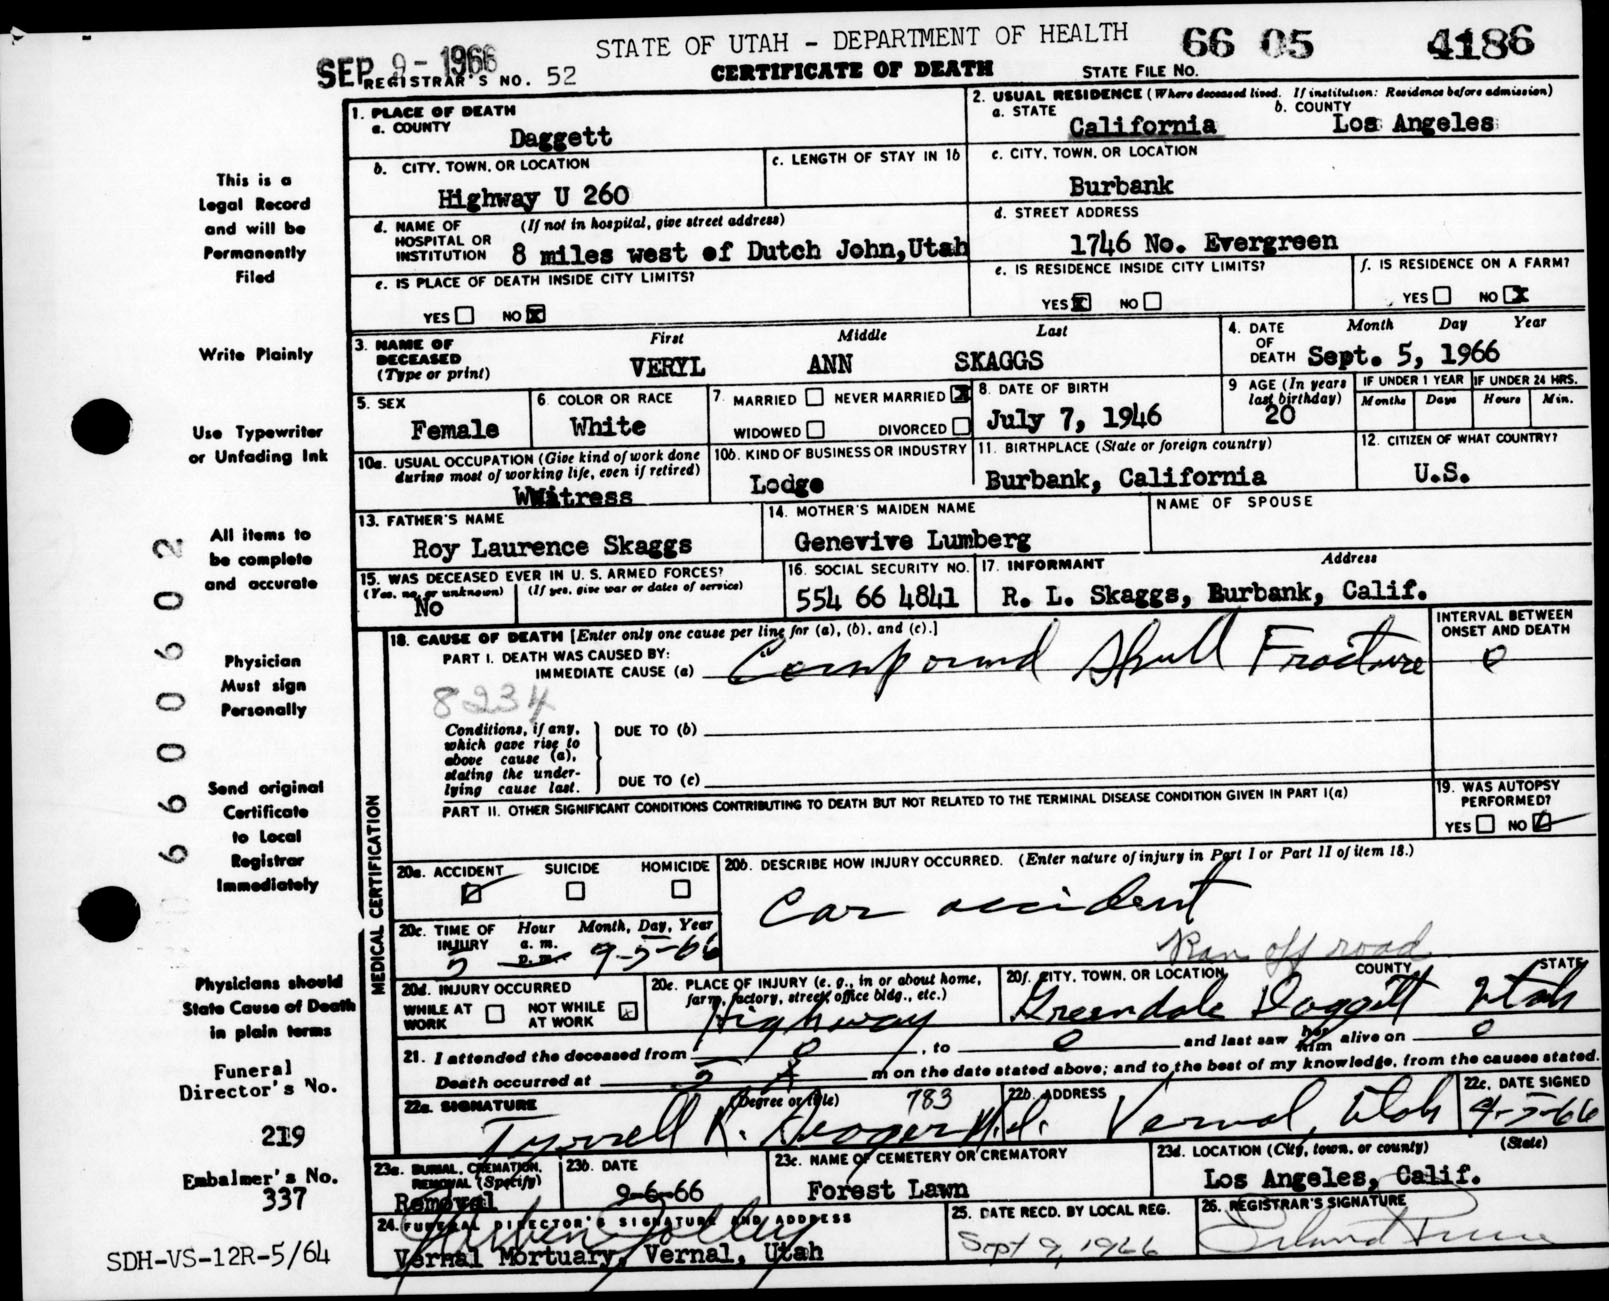 STATE OF UTAH - DEPARTMENT OF HEALTH
66 05 4186
SEP 9 - 1966
REGISTRAR'S NO. 52
CERTIFICATE OF DEATH
STATE FILE NO.
1. PLACE OF DEATH
a. COUNTY
Daggett
2. USUAL RESIDENCE (Where deceased lived. If institution: Residence before admission)
a. STATE
California
b. COUNTY
Los Angeles
b. CITY, TOWN, OR LOCATION
Highway U 260
c. LENGTH OF STAY IN 1b
c. CITY, TOWN, OR LOCATION
Burbank
d. NAME OF HOSPITAL OR INSTITUTION
(If not in hospital, give street address)
8 miles west of Dutch John,Utah
d. STREET ADDRESS
1746 No. Evergreen
e. IS PLACE OF DEATH INSIDE CITY LIMITS?
YES NO X
e. IS RESIDENCE INSIDE CITY LIMITS?
YES X NO
f. IS RESIDENCE ON A FARM?
YES NO X
3. NAME OF DECEASED (Type or print)
First Middle Last
VERYL ANN SKAGGS
4. DATE OF DEATH
Month Day Year
Sept. 5, 1966
5. SEX
Female
6. COLOR OR RACE
White
7. MARRIED NEVER MARRIED X
WIDOWED DIVORCED
8. DATE OF BIRTH
July 7, 1946
9 AGE (In years last birthday)
20
IF UNDER 1 YEAR
Months Days
IF UNDER 24 HRS.
Hours Min.
10a. USUAL OCCUPATION (Give kind of work done during most of working life, even if retired)
Waitress
10b. KIND OF BUSINESS OR INDUSTRY
Lodge
11. BIRTHPLACE (State or foreign country)
Burbank, California
12. CITIZEN OF WHAT COUNTRY?
U.S.
13. FATHER'S NAME
Roy Laurence Skaggs
14. MOTHER'S MAIDEN NAME
Genevive Lumberg
NAME OF SPOUSE
15. WAS DECEASED EVER IN U. S. ARMED FORCES?
(Yes, no, or unknown) (If yes, give war or dates of service)
No
16. SOCIAL SECURITY NO.
554 66 4841
17. INFORMANT Address
R. L. Skaggs, Burbank, Calif.
MEDICAL CERTIFICATION
18. CAUSE OF DEATH [Enter only one cause per line for (a), (b), and (c).]
INTERVAL BETWEEN ONSET AND DEATH
PART I. DEATH WAS CAUSED BY:
IMMEDIATE CAUSE (a) Compound Skull Fracture 0
8234
Conditions, if any, which gave rise to above cause (a), stating the underlying cause last.
DUE TO (b)
DUE TO (c)
PART II. OTHER SIGNIFICANT CONDITIONS CONTRIBUTING TO DEATH BUT NOT RELATED TO THE TERMINAL DISEASE CONDITION GIVEN IN PART I(a)
19. WAS AUTOPSY PERFORMED?
YES NO
20a. ACCIDENT SUICIDE HOMICIDE
20b. DESCRIBE HOW INJURY OCCURRED. (Enter nature of injury in Part I or Part II of item 18.)
Car accident
Ran off road
20c. TIME OF INJURY
Hour Month, Day, Year
a. m.
p. m.
5 9-5-66
20d. INJURY OCCURRED
WHILE AT WORK NOT WHILE AT WORK X
20e. PLACE OF INJURY (e. g., in or about home, farm, factory, street, office bldg., etc.)
Highway
20f. CITY, TOWN, OR LOCATION COUNTY STATE
Greendale Daggett Utah
21. I attended the deceased from 0, to 0 and last saw her him alive on 0
Death occurred at 5 m on the date stated above; and to the best of my knowledge, from the causes stated.
22a. SIGNATURE (Degree or title) 783
Tyrrell R. Seager M.D.
22b. ADDRESS
Vernal, Utah
22c. DATE SIGNED
9-5-66
23a. BURIAL, CREMATION, REMOVAL (Specify)
Removal
23b. DATE
9-6-66
23c. NAME OF CEMETERY OR CREMATORY
Forest Lawn
23d. LOCATION (City, town, or county) (State)
Los Angeles, Calif.
24. FUNERAL DIRECTOR'S SIGNATURE AND ADDRESS
Vernal Mortuary, Vernal, Utah
25. DATE RECD. BY LOCAL REG.
Sept 9, 1966
26. REGISTRAR'S SIGNATURE
This is a
Legal Record
and will be
Permanently
Filed
Write Plainly
Use Typewriter
or Unfading Ink
All items to
be complete
and accurate
Physician
Must sign
Personally
Send original
Certificate
to Local
Registrar
Immediately
Physicians should
State Cause of Death
in plain terms
Funeral
Director's No.
219
Embalmer's No.
337
SDH-VS-12R-5/64
6600602